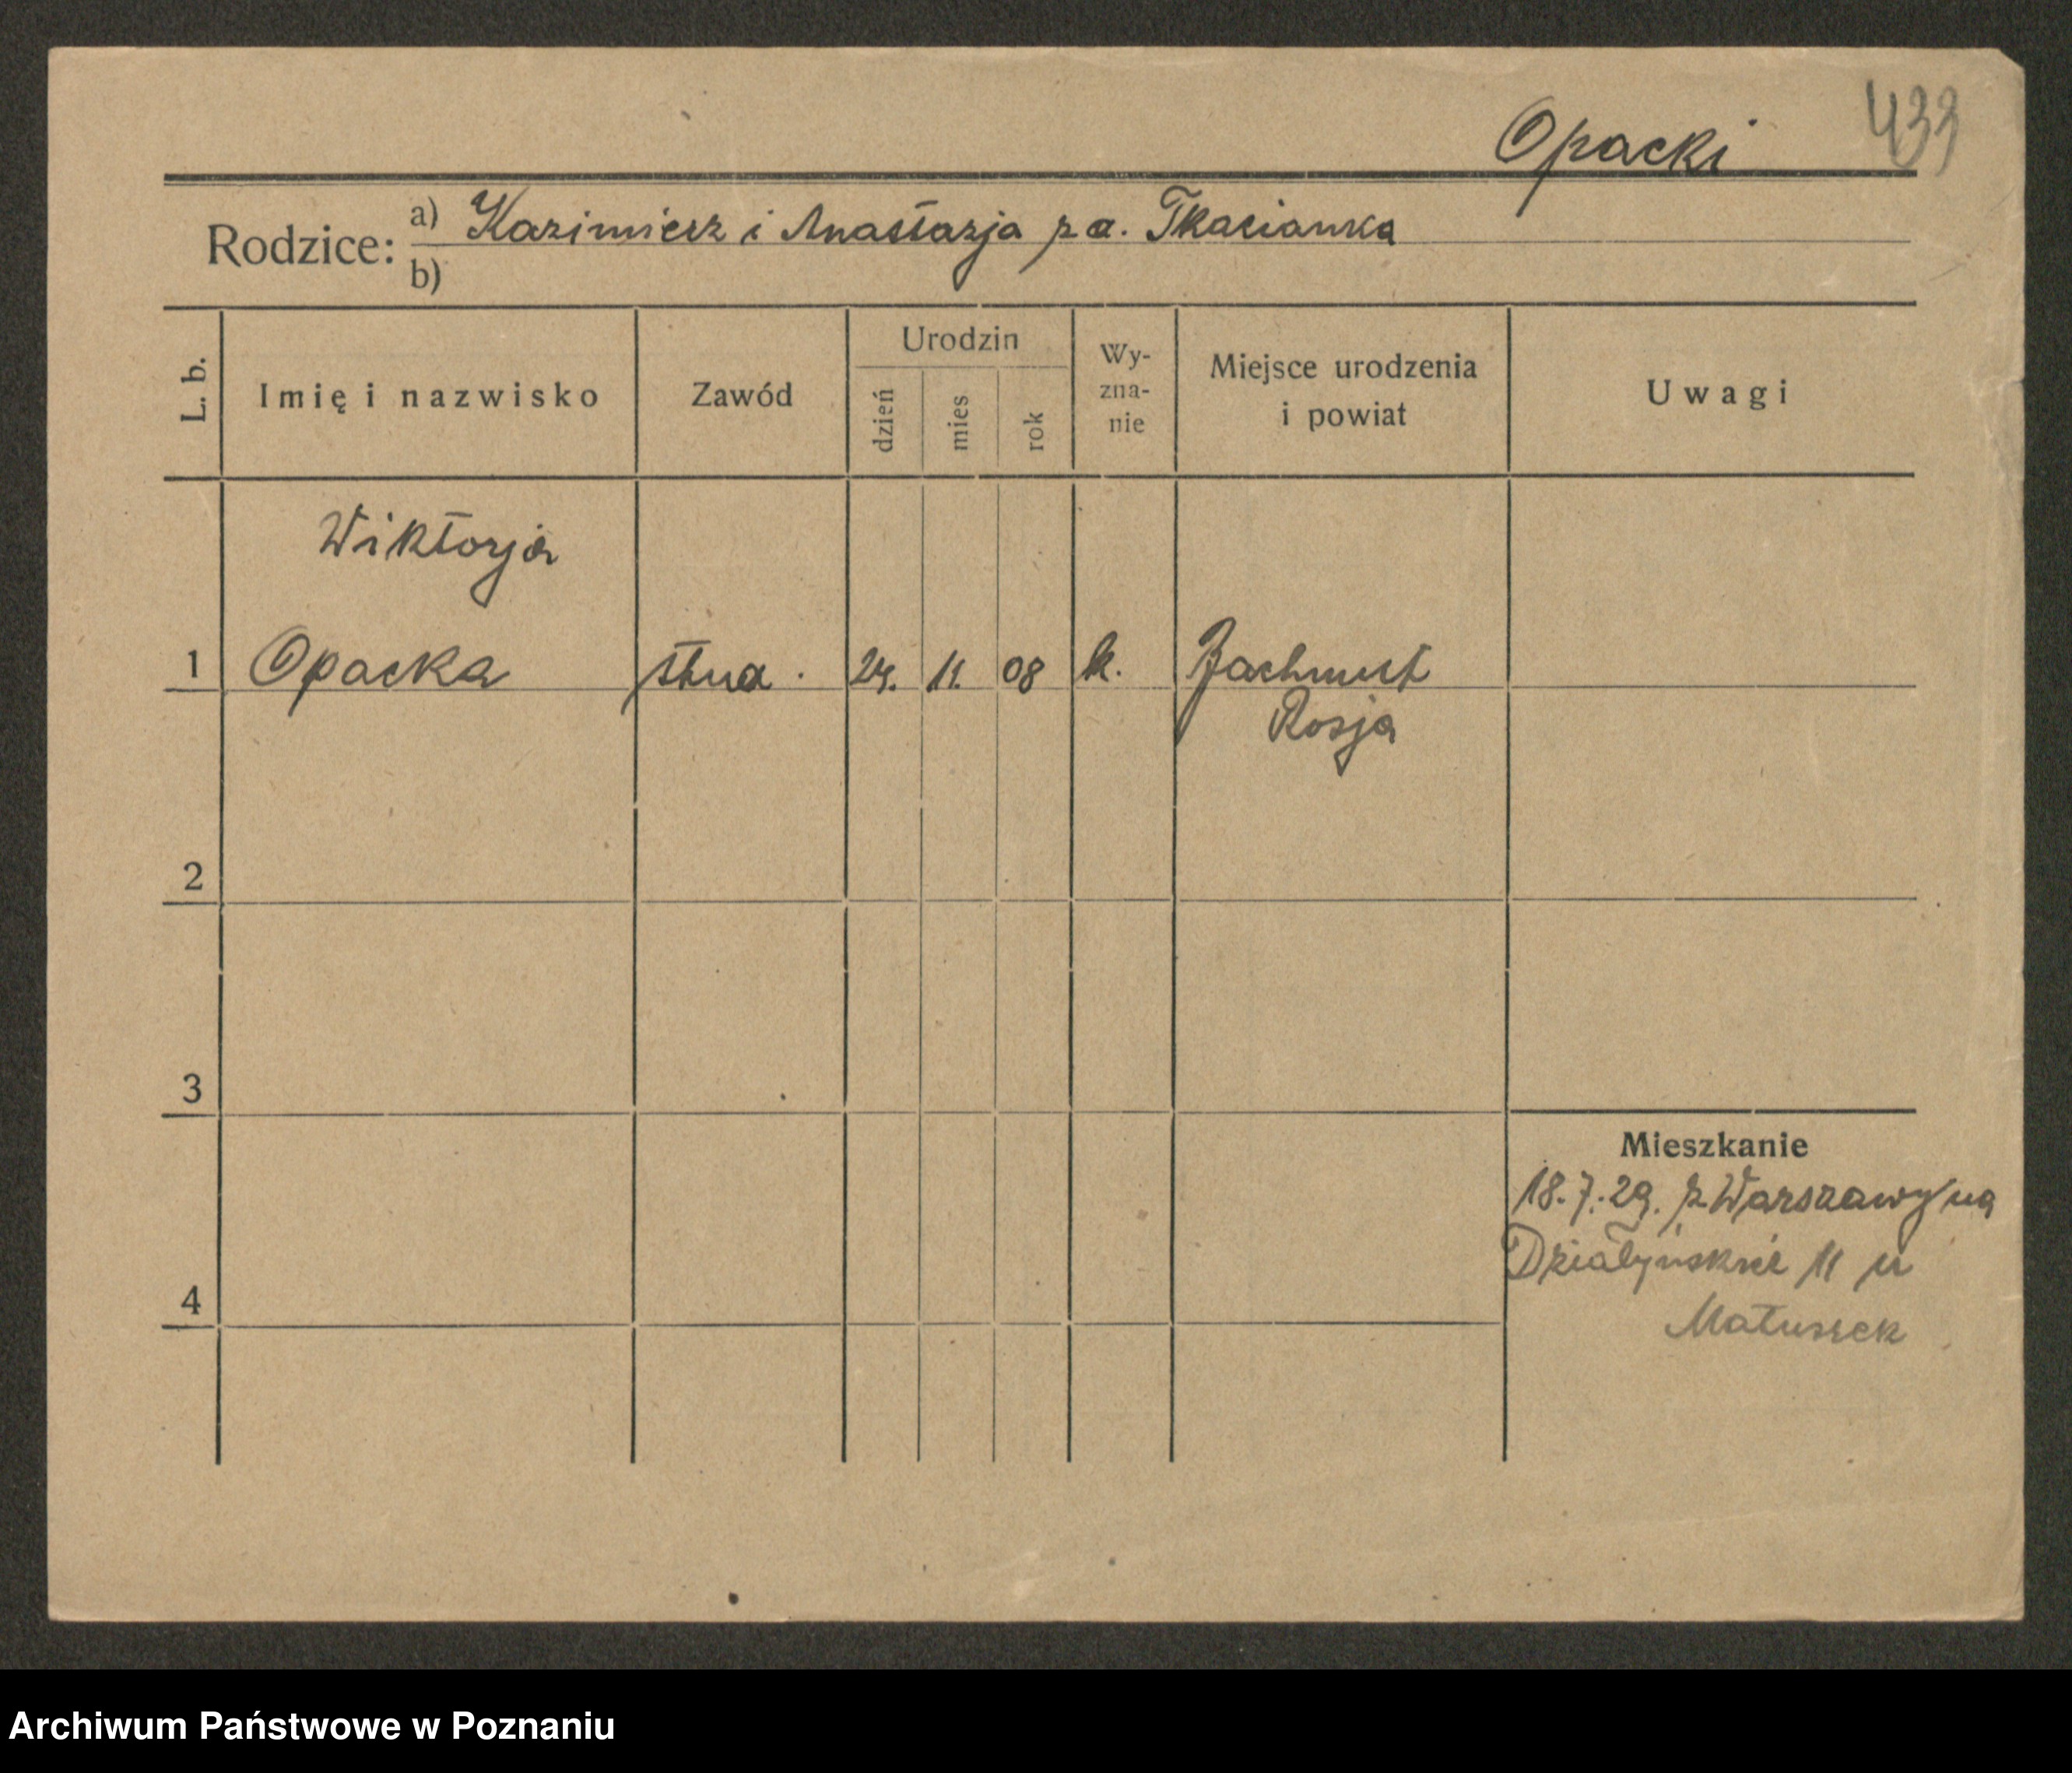 Opacki 433
Rodzice: a) Kazimierz i Anastazja z d. Tkacianka
b)
L. b. Imię i nazwisko Zawód Urodzin dzień mies rok Wy-zna-nie Miejsce urodzenia i powiat Uwagi
Wiktorja
1 Opacka stud. 24. 11. 08 k. Bachmut
Rosja
2
3
Mieszkanie
18.7.29. z Warszawy na
Działyńskich 11 u
4
Matuszek
Archiwum Państwowe w Poznaniu